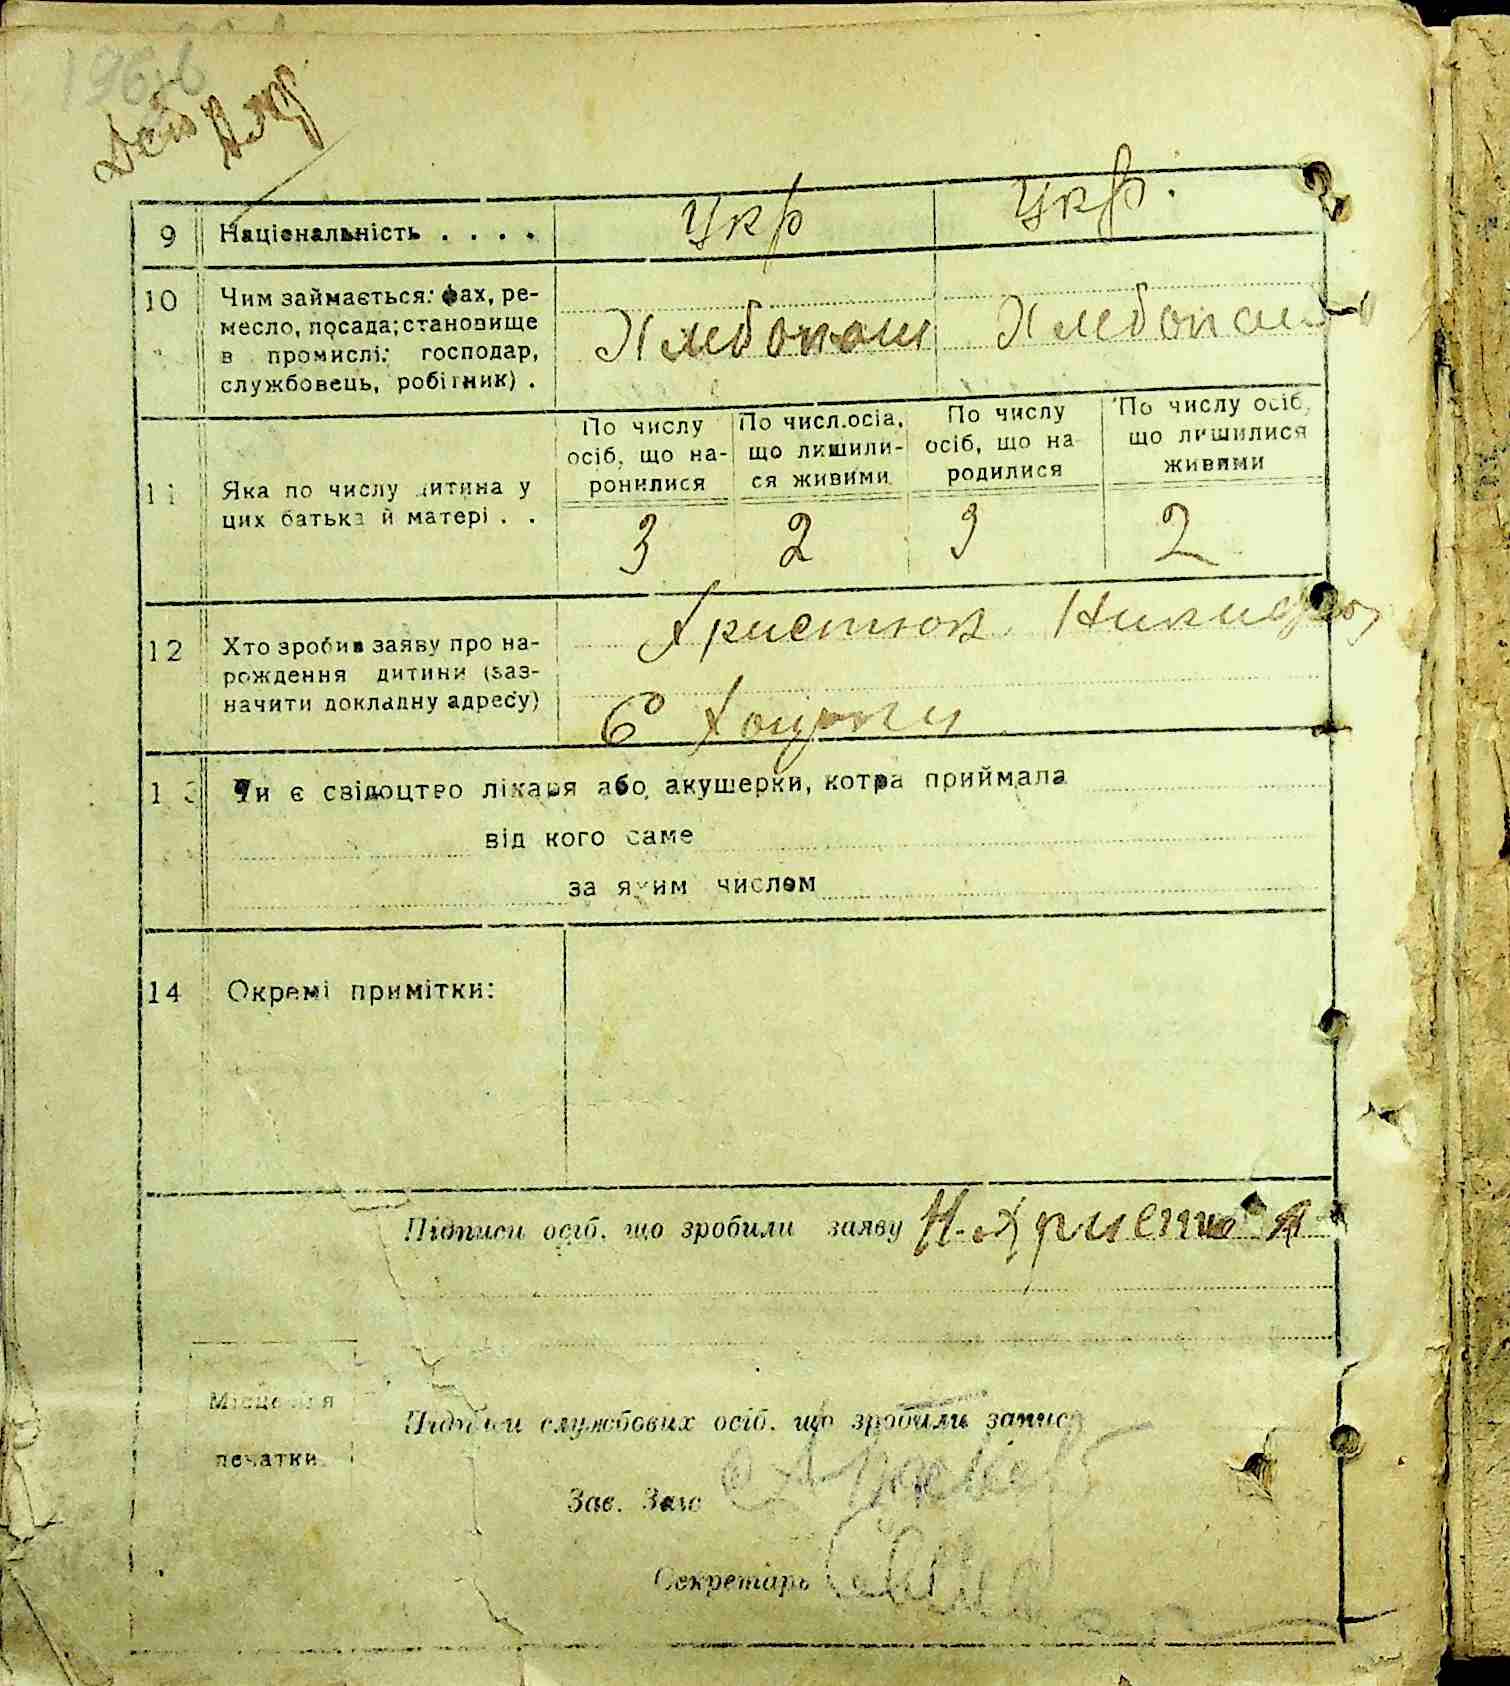 9 Національність . . . . Укр Укр.
10 Чим займається: фах, ре-
месло, посада; становище
в промислі: господар,
службовець, робітник) .
Хлебопаш Хлебопаш
По числу осіб, що на-ронилися
По числ.осіа, що лишили-ся живими
По числу осіб, що на родилися
По числу осіб, що лишилися живими
11 Яка по числу дитина у
цих батька й матері . .
3 2 3 2
12 Хто зробив заяву про на-
рождення дитини (заз-
начити докладну адресу)
Христюк Никифор
С
13 Чи є свідоцтво лікаря або акушерки, котра приймала
від кого саме
за яким числом
14 Окремі примітки:
Підписи осіб, що зробили заяву Н. Христюк
Місце для
печатки
Підписи службових осіб, що зробили запис
Зав. Загс
Секретарь